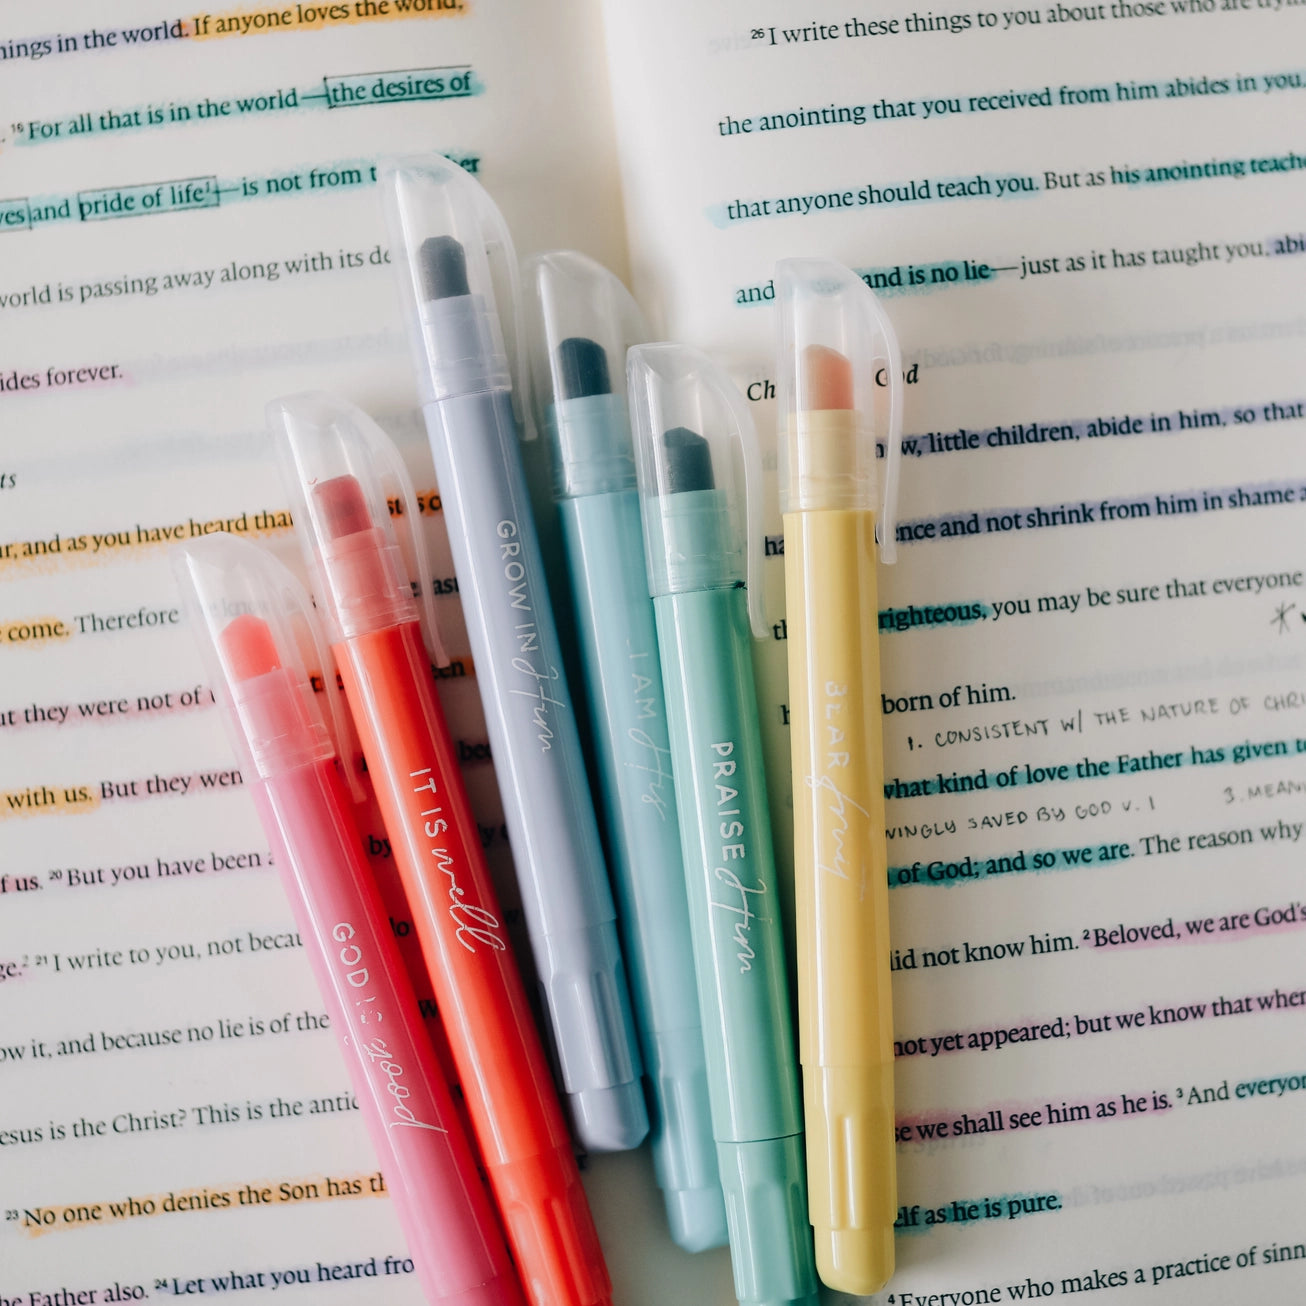 things in the world. If anyone loves the world,
16 For all that is in the world—the desires of
and pride of life1—is not from
world is passing away along with its
forever.
and as you have heard that
come. Therefore
they were not of
with us. But they
of us. 20 But you have been
2 21 I write to you, not
it, and because no lie is of the
is the Christ? This is the
23 No one who denies the Son has
Father also. 24 Let what you heard
26 I write these things to you about those who are
the anointing that you received from him abides in you,
that anyone should teach you. But as his anointing
and is no lie—just as it has taught you,
God
little children, abide in him, so that
and not shrink from him in shame
righteous, you may be sure that everyone
born of him.
1. CONSISTENT W/ THE NATURE OF
what kind of love the Father has given
SAVED BY GOD V. 1 3.
of God; and so we are. The reason why
did not know him. 2 Beloved, we are God's
not yet appeared; but we know that
we shall see him as he is. 3 And
as he is pure.
4 Everyone who makes a practice of
GOD IS good
IT IS well
GROW IN Him
I AM His
PRAISE Him
BEAR fruit